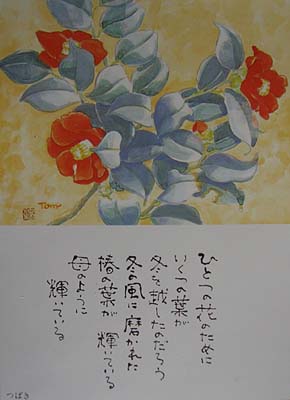 Tomi
ひとつの花のために
いくつの葉が
冬を越したのだろう
冬の風に磨かれた
椿の葉が 輝いている
母のように
輝いている
つばき